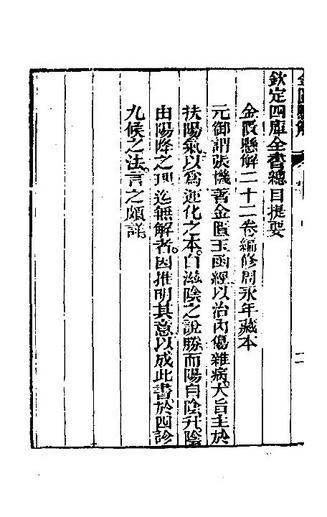 金匱懸解
欽定四庫全書總目提要
金匱懸解二十二卷編修周永年藏本
元御謂張機著金匱玉函經以治內傷雜病大旨主於
扶陽氣以為運化之本自滋陰之說勝而陽自陰升陰
由陽降之理迄無解者因推明其意以成此書於四診
九候之法言之頗詳